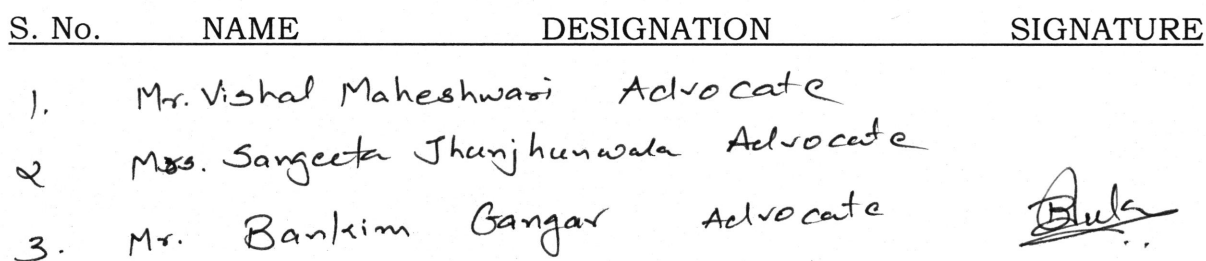 S. No. NAME DESIGNATION SIGNATURE
1. Mr. Vishal Maheshwari Advocate
2 Mrs. Sangeeta Jhunjhunwala Advocate
3. Mr. Bankim Gangar Advocate